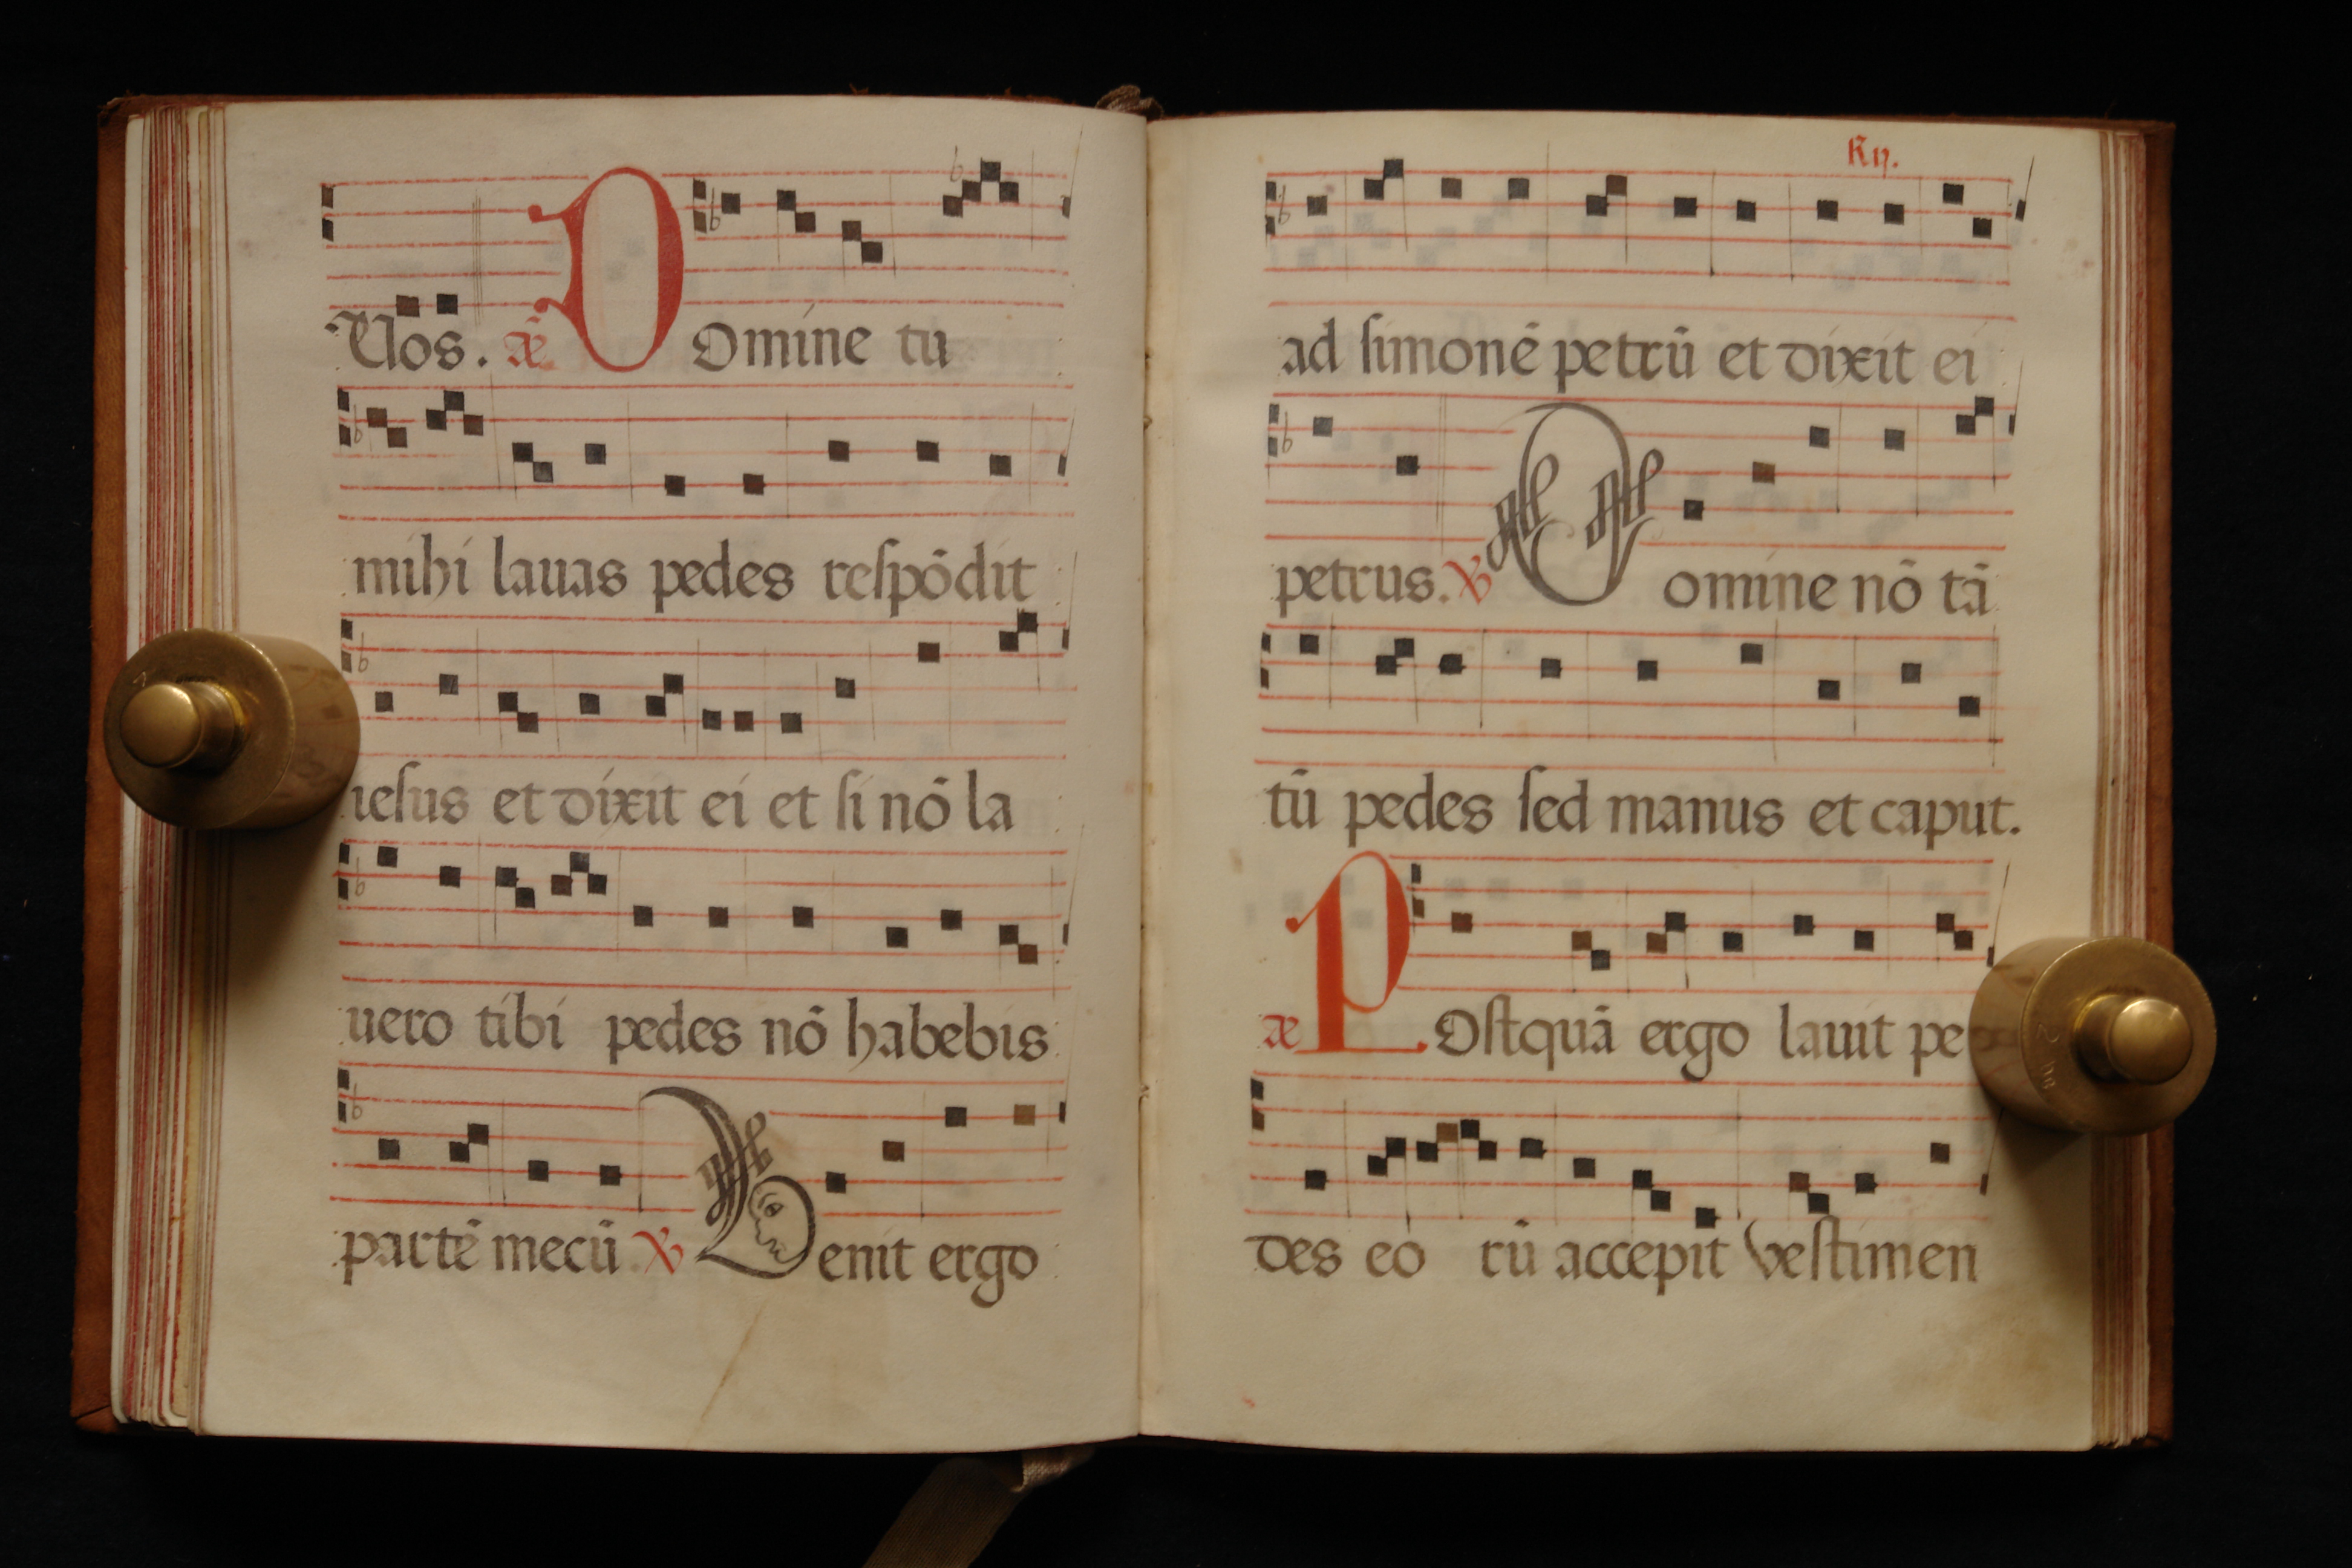 Uos. añ Domine tu
mihi lauas pedes reſpõdit
ieſus et dixit ei et ſi nõ la
uero tibi pedes nõ habebis
partẽ mecũ. ℣ Uenit ergo
ad ſimonẽ petrũ et dixit ei
petrus. ℣ Domine nõ tã
tũ pedes ſed manus et caput.
POſtquã ergo lauit pe
des eo rũ accepit veſtimen